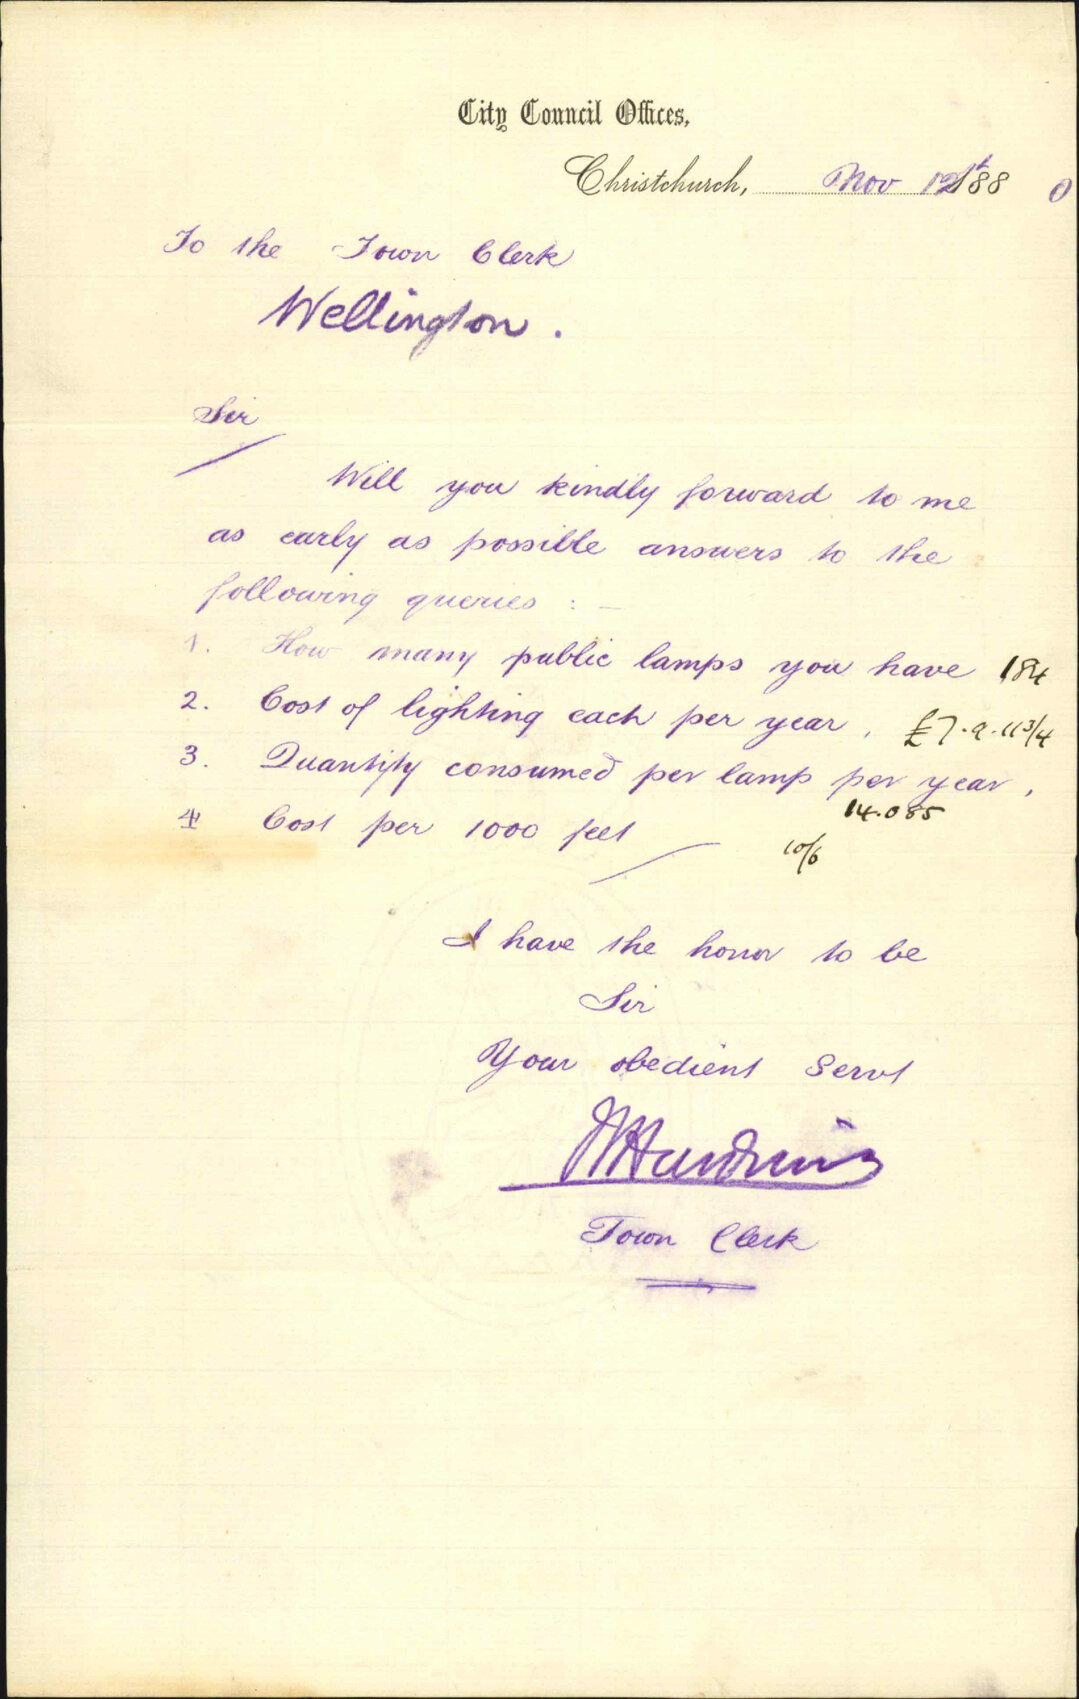 City Council Offices,
Christchurch, Nov 12th 1880
To the Town Clerk
Wellington.
Sir
Will you kindly forward to me
as early as possible answers to the
following queries : —
1. How many public lamps you have 184
2. Cost of lighting each per year, £7.9.11 3/4
3. Quantity consumed per lamp per year,
14.085
4 Cost per 1000 feet
10/6
I have the honor to be
Sir
Your obedient Servt
Town Clerk